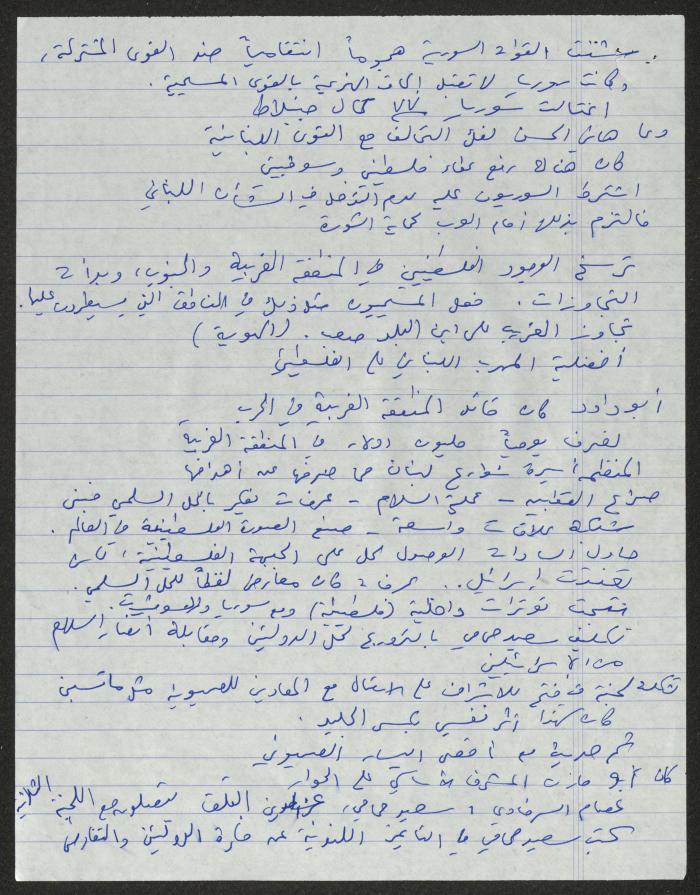 شنت القوات السورية هجوماً انتقامياً ضد القوى المشتركة،
وكانت سوريا لا تقبل إلحاق الهزيمة بالقوى المسيحية.
اغتالت سوريا ٧٧ كمال جنبلاط
هاني الحسن لفك التحالف مع القوى اللبنانية
كان هناك فلسطيني وسوفييتي
اشترط السوريون عليه عدم التدخل في الشأن اللبناني
فالتزم بذلك أمام العرب لحماية الثورة
ترسخ الوجود الفلسطيني في المنطقة الغربية والجنوب، وبدأت
التجاوزات. فعل المسيحيون مثل ذلك في المناطق التي يسيطرون عليها.
تجاوز الغريب على ابن البلد صعب. (الهوية)
أفضلية المهرب اللبناني على الفلسطيني
أبو داود كان قائد المنطقة الغربية في الحرب
لصرف يومياً مليون دولار في المنطقة الغربية
المنظمة أسيرة شوارع لبنان مما صرفها عن أهدافها
صراع القطبية - عملية السلام - عرفات يفكر بالحل السلمي فبنى
شبكة علاقات واسعة - صنع الصورة الفلسطينية في العالم.
حاول السادات الوصول لحل على الجبهة الفلسطينية، لكن
تعنتت اسرائيل.. عرفات كان معارض لفظاً للحل السلمي.
نتجت توترات داخلية (فلسطينية) ومع سوريا والسوفييت.
تكليف سعيد حمامي بالترويج لحل الدولتين ومقابلة أنصار السلام
من الاسرائيليين
تشكلت لجنة في فتح للاشراف على الاتصال مع المعادين للصهيونية مثل ماتسبن
كان لهذا أثر نفسي بكسر الجليد.
ثم حديث مع أقصى اليسار الصهيوني
كان أبو مازن المشرف الأساسي على الحوار
عصام السرطاوي، سعيد حمامي، عزالدين القلق يتصلون مع اللجنة الثلاثية
كتب سعيد حمامي في التايمز اللندنية عن فكرة الدولتين والتعايش